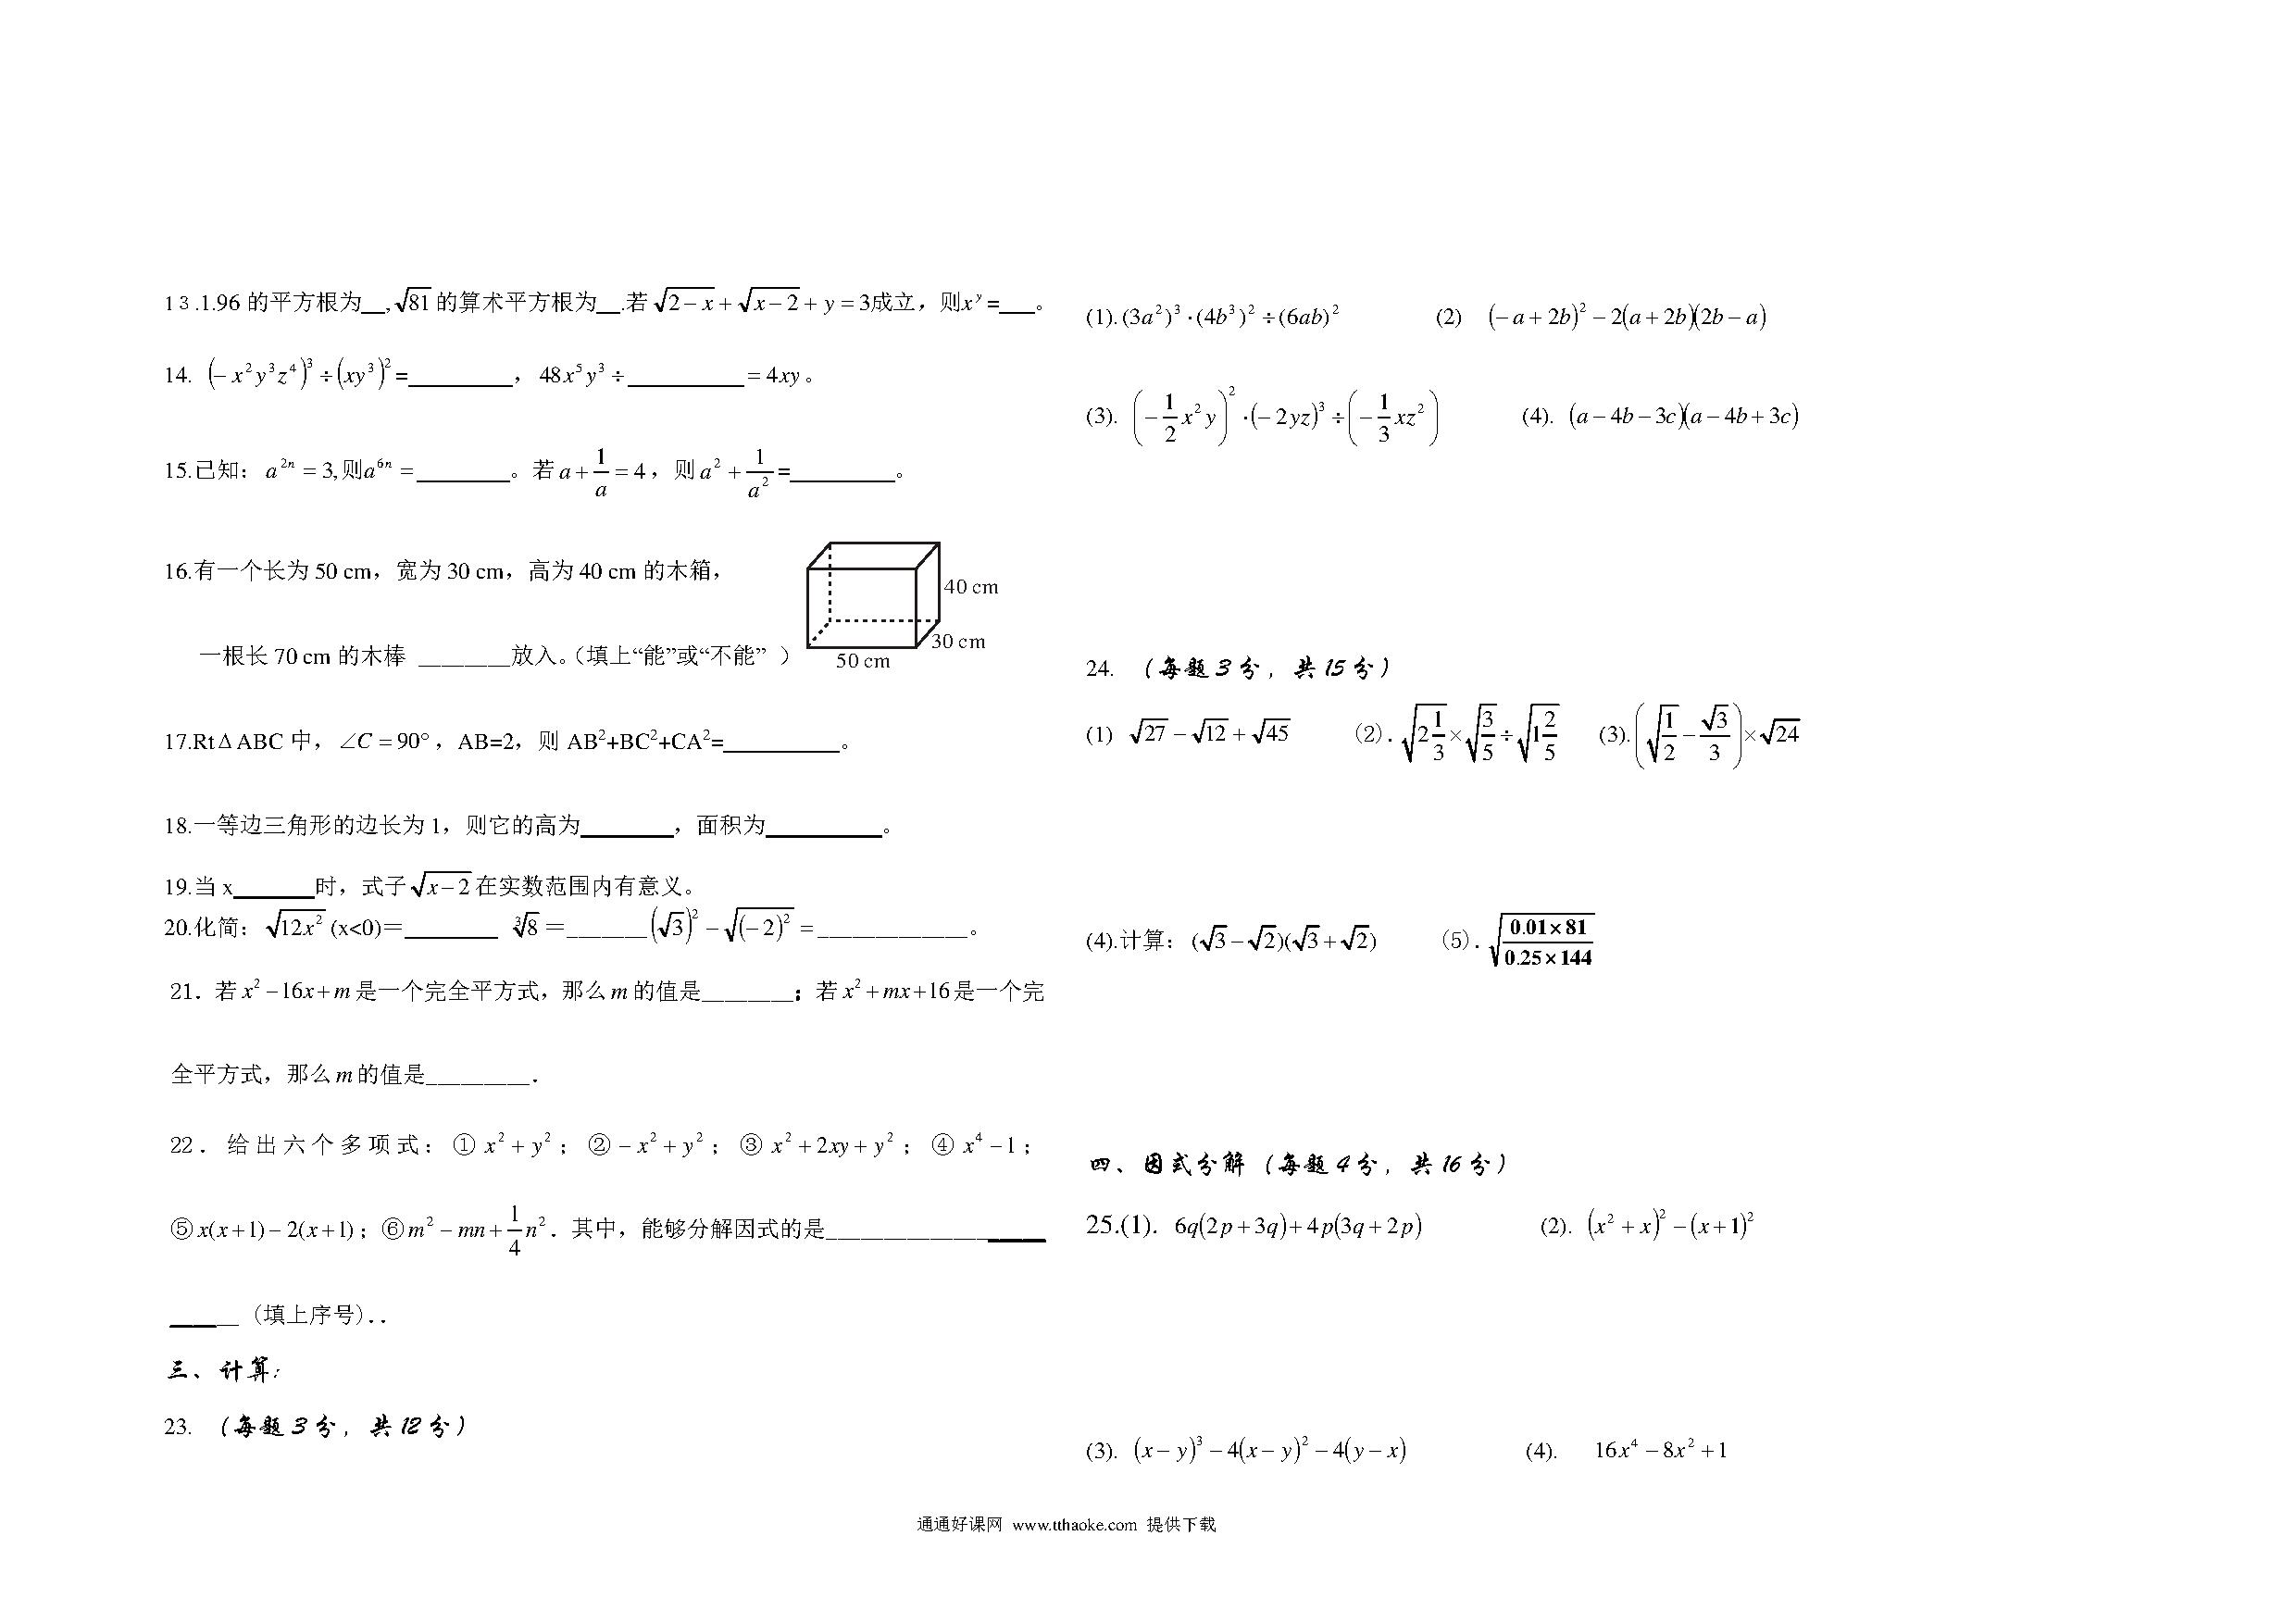 13.1.96 的平方根为__,√81 的算术平方根为__.若 √(2−x) + √(x−2) + y = 3成立，则xʸ =___。
14. (−x²y³z⁴)³ ÷ (xy³)² =_________，48x⁵y³ ÷ __________ = 4xy。
15.已知：a²ⁿ = 3,则a⁶ⁿ = ________。若 a + 1/a = 4，则 a² + 1/a² =_________。
16.有一个长为 50 cm，宽为 30 cm，高为 40 cm 的木箱，
一根长 70 cm 的木棒 ________放入。（填上“能”或“不能” ）
40 cm
30 cm
50 cm
17.Rt△ABC 中，∠C = 90°，AB=2，则 AB²+BC²+CA²=__________。
18.一等边三角形的边长为 1，则它的高为________，面积为__________。
19.当 x_______时，式子 √(x−2) 在实数范围内有意义。
20.化简：√(12x²) (x<0)＝________ ∛8 ＝_______ (√3)² − √((−2)²) = _____________。
21．若 x² −16x + m 是一个完全平方式，那么 m 的值是________；若 x² + mx +16 是一个完
全平方式，那么 m 的值是_________．
22．给出六个多项式：① x² + y²；② −x² + y²；③ x² + 2xy + y²；④ x⁴ −1；
⑤ x(x+1) − 2(x+1)；⑥ m² − mn + 1/4 n²．其中，能够分解因式的是___________________
______（填上序号）. .
三、计算:
23. （每题 3 分，共 12 分）
(1). (3a²)³ ·(4b³)² ÷ (6ab)² (2) (−a + 2b)² − 2(a + 2b)(2b − a)
(3). (−1/2 x²y)² ·(−2yz)³ ÷ (−1/3 xz²) (4). (a − 4b − 3c)(a − 4b + 3c)
24. （每题 3 分，共 15 分）
(1) √27 − √12 + √45 （2）. √(2 1/3) × √(3/5) ÷ √(1 2/5) (3). (√(1/2) − √3/3) × √24
(4).计算：(√3 − √2)(√3 + √2) （5）. √((0.01×81)/(0.25×144))
四、因式分解（每题 4 分，共 16 分）
25.(1). 6q(2p + 3q) + 4p(3q + 2p) (2). (x² + x)² − (x +1)²
(3). (x − y)³ − 4(x − y)² − 4(y − x) (4). 16x⁴ − 8x² + 1
通通好课网 www.tthaoke.com 提供下载